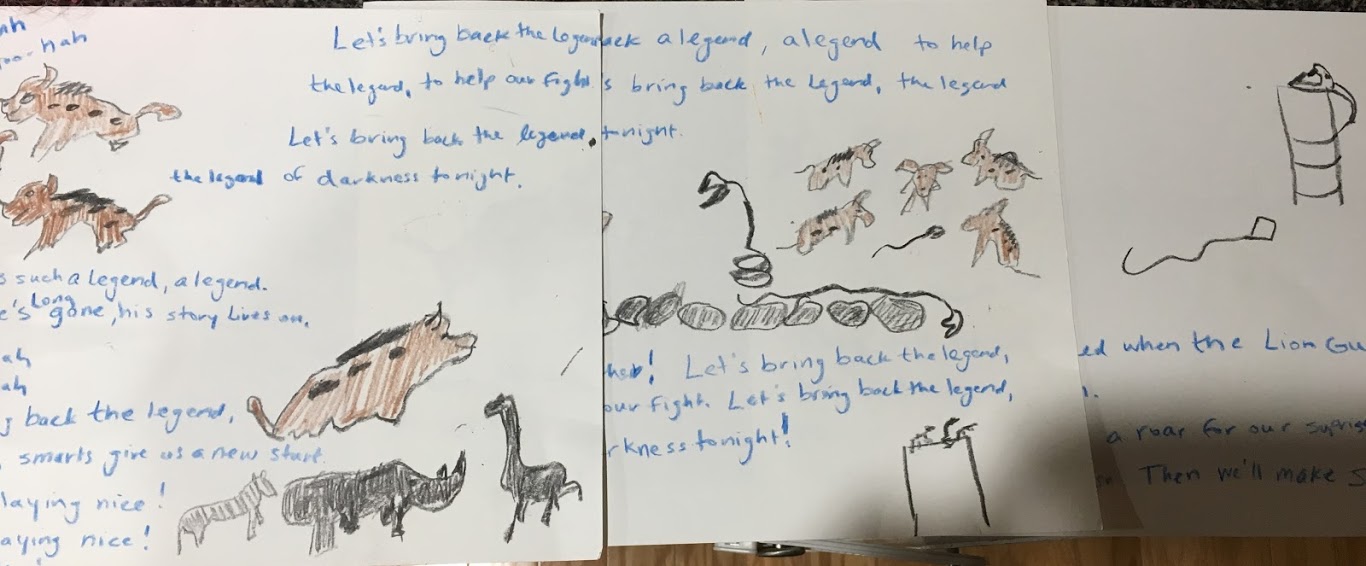 ah
oo-hah
Let's bring back the legend
ack a legend, a legend to help
the legend, to help our fight
s bring back the legend, the legend
Let's bring back the legend, tonight.
the legend of darkness tonight.
s such a legend, a legend.
e's Long gone, his story lives on.
ah
ah
g back the legend,
smarts give us a new start.
laying nice!
aying nice!
her! Let's bring back the legend,
our fight. Let's bring back the legend,
rkness tonight!
ed when the Lion Gu
a roar for our
Then we'll make s